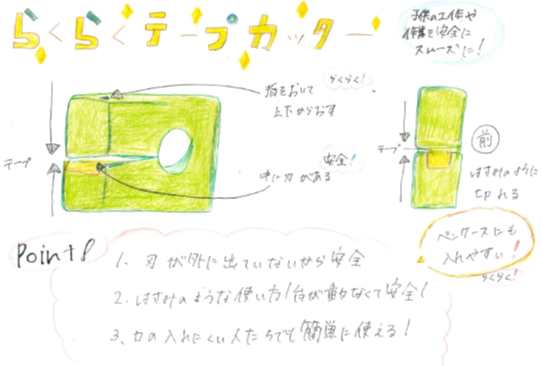 らくらくテープカッター
子供の工作や
作業を安全に
スムーズに!
指をおいて
上下からおす
らくらく!
テープ
安全!
中に刃がある
テープ
前
はさみのように
切れる
ペンケースにも
入れやすい!
らくらく!
Point!
1. 刃が外に出ていないから安全
2. はさみのような使い方!台が動かなくて安全!
3. 力の入れにくい人たちでも簡単に使える!